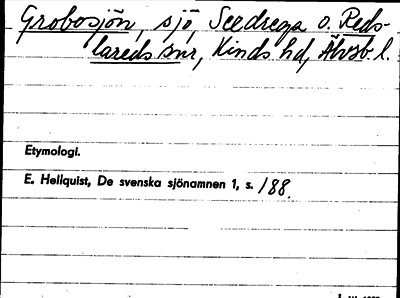 Grobosjön, sjö, Seedrega o. Reds-
lareds snr, Kinds hd, Älvsb. l.
Etymologi.
E. Hellquist, De svenska sjönamnen 1, s. 188.